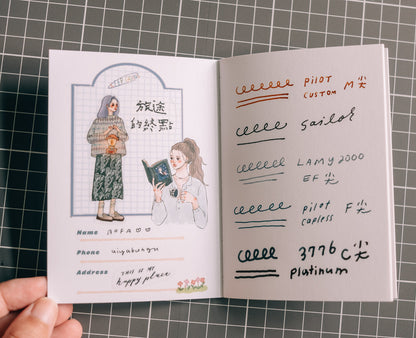 旅途
的終點
Name
Phone
Address THIS IS MY
happy place
PILOT
CUSTOM M尖
Sailor
LAMY 2000
EF尖
pilot
capless F尖
3776 C尖
platinum